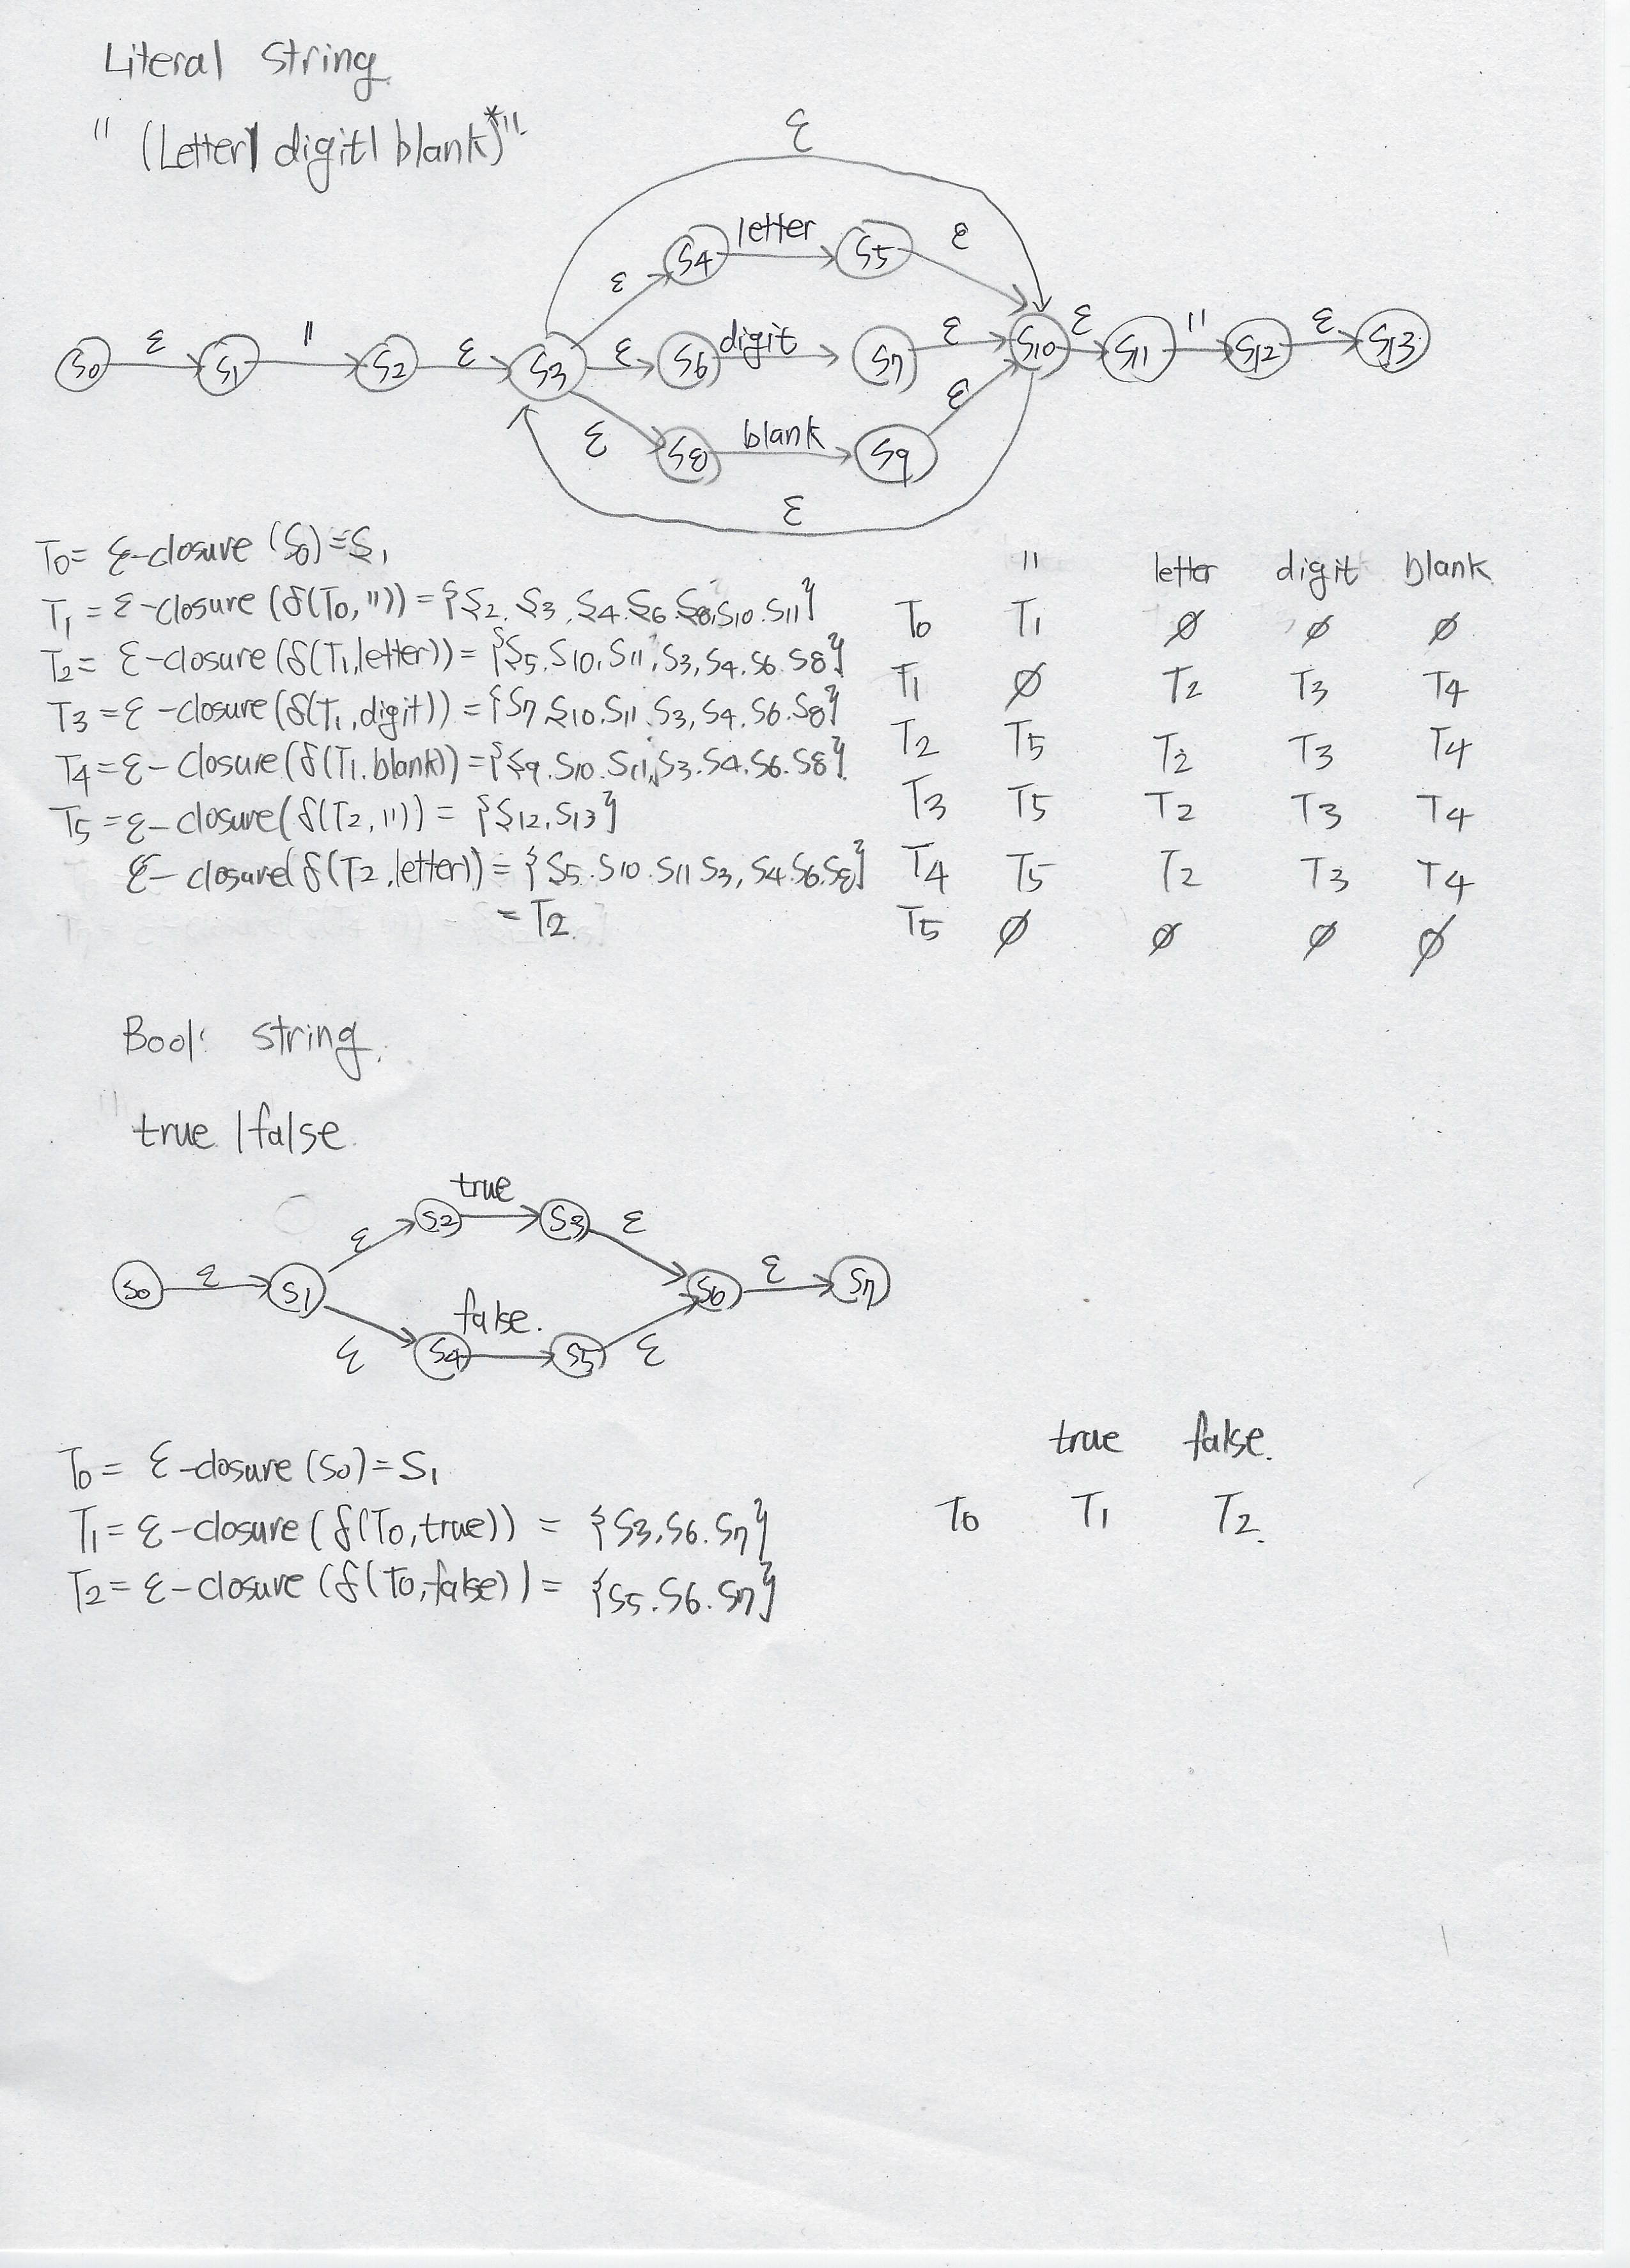 Literal string.
" (Letter| digit| blank)*"
ε
letter
S4 S5 ε
ε
S0 ε S1 " S2 ε S3 ε S6 digit S7 ε S10 ε S11 " S12 ε S13
ε S8 blank S9 ε
ε
T0= ε-closure (S0)=S1
T1 = ε-closure (δ(T0,")) = {S2. S3, S4. S6. S8, S10. S11}
T2= ε-closure (δ(T1,letter)) = {S5. S10, S11, S3, S4. S6. S8}
T3 = ε-closure (δ(T1,digit)) = {S7 S10. S11. S3, S4. S6. S8}
T4 = ε-closure (δ(T1.blank)) = {S9. S10. S11, S3. S4. S6. S8}
T5 = ε-closure(δ(T2,")) = {S12, S13}
ε-closure(δ(T2,letter)) = {S5. S10. S11 S3, S4. S6. S8}
= T2.
" letter digit blank
T0 T1 ∅ ∅ ∅
T1 ∅ T2 T3 T4
T2 T5 T2 T3 T4
T3 T5 T2 T3 T4
T4 T5 T2 T3 T4
T5 ∅ ∅ ∅ ∅
Bool string.
true |false.
true
ε S2 S3 ε
S0 ε S1 S6 ε S7
false.
ε S4 S5 ε
T0 = ε-closure (S0)=S1
T1 = ε-closure (δ(T0,true)) = {S3, S6. S7}
T2= ε-closure (δ(T0,false)) = {S5. S6. S7}
true false.
T0 T1 T2.